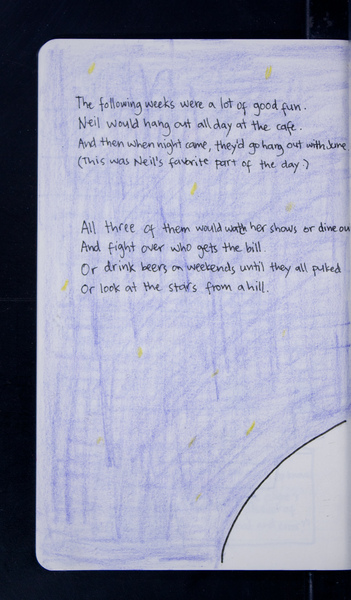 The following weeks were a lot of good fun.
Neil would hang out all day at the cafe.
And then when night came, they'd go hang out with June
(This was Neil's favorite part of the day.)
All three of them would watch her shows or dine ou
And fight over who gets the bill
Or drink beers on weekends until they all puked
Or look at the stars from a hill.